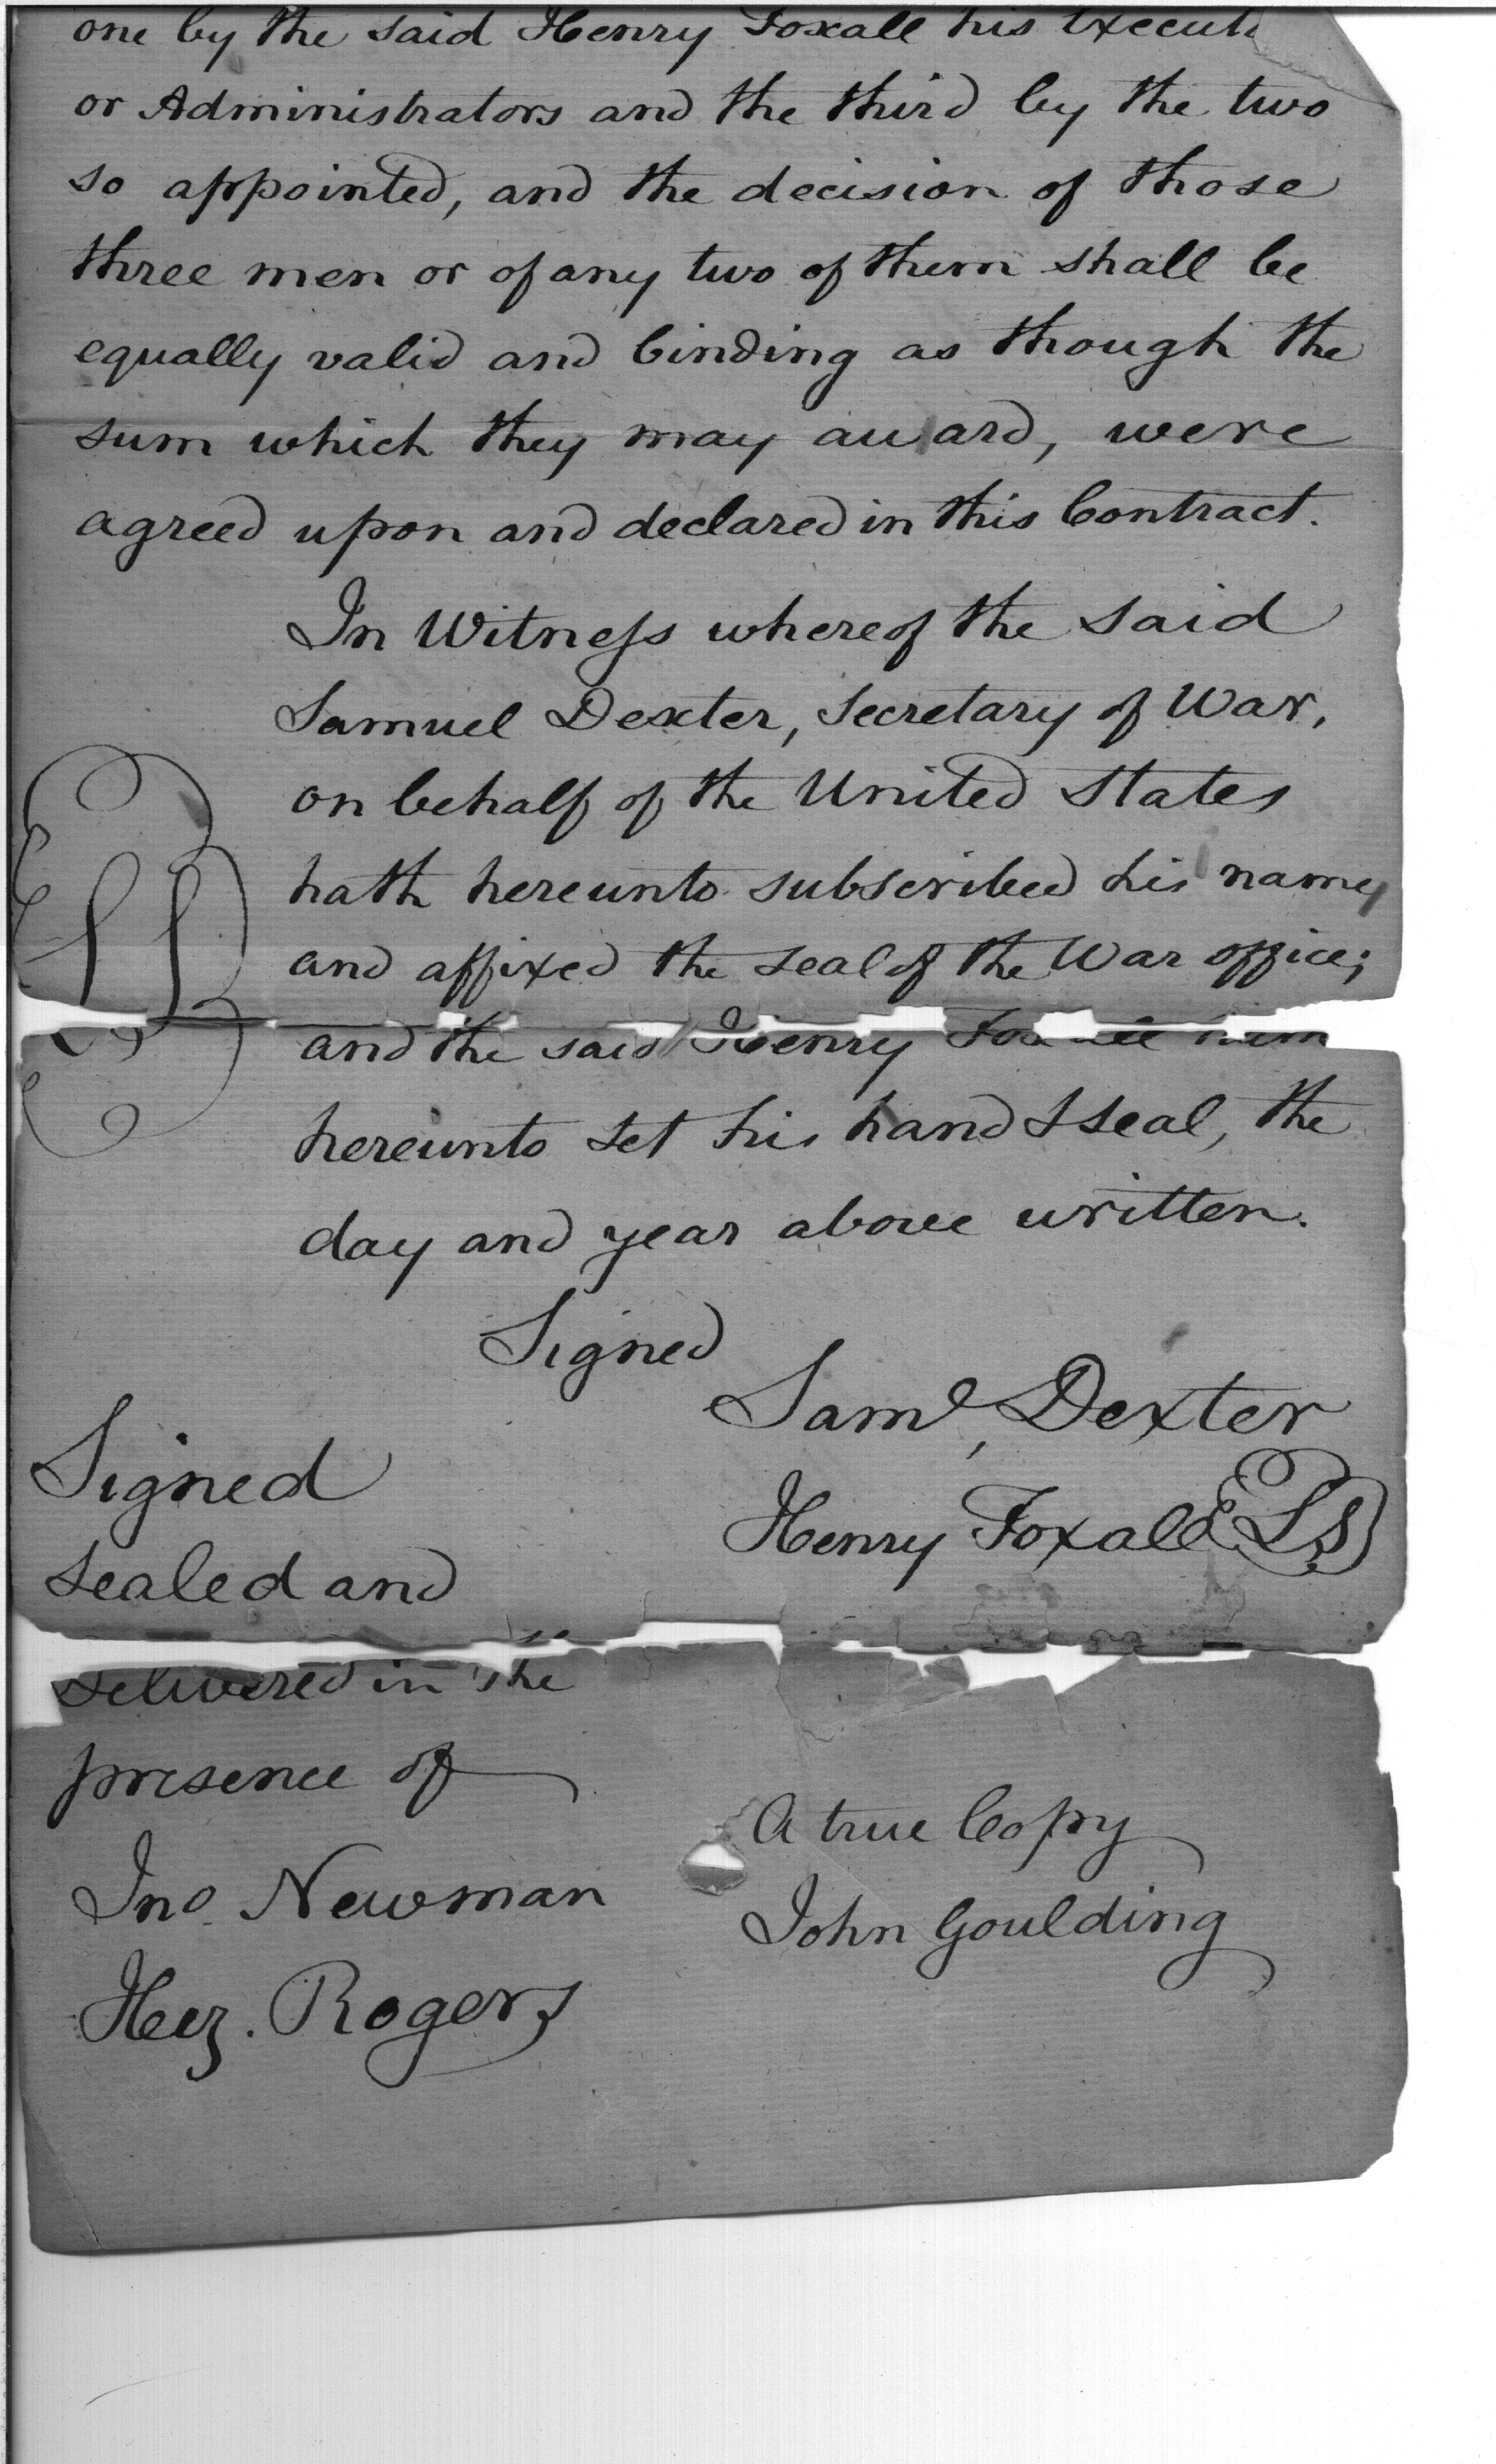 one by the said Henry Foxall his Execut
or Administrators and the third by the two
so appointed, and the decision of those
three men or of any two of them shall be
equally valid and binding as though the
sum which they may award, were
agreed upon and declared in this Contract.
In Witneſs whereof the said
Samuel Dexter, Secretary of War,
on behalf of the United States
hath hereunto subscribed his name,
and affixed the seal of the War office;
LS
and the said Henry Foxall
hereunto set his hand & seal, the
day and year above written.
Signed
Saml. Dexter
Henry Foxall LS
Signed
sealed and
delivered in the
presence of
Jno. Newman
Hez. Rogers
A true Copy
John Goulding